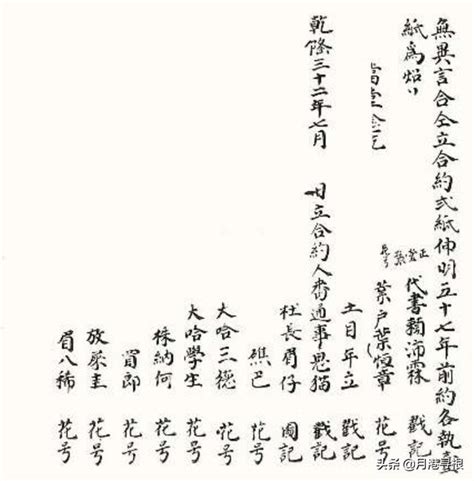 無異言合仝立合約弍紙佈明五十七年前約各執壹
紙為炤
代書賴沛霖 戳記
業戶葉恒章 花号
土目年立 戳記
乾隆三十二年七月 日立合約人畨通事思猫 戳記
社長眉仔 圖記
礁巴 花号
大哈三德 花号
大哈學生 花号
株納何 花号
眉郎 花号
眉八稀 花号
头条 @月港寻根